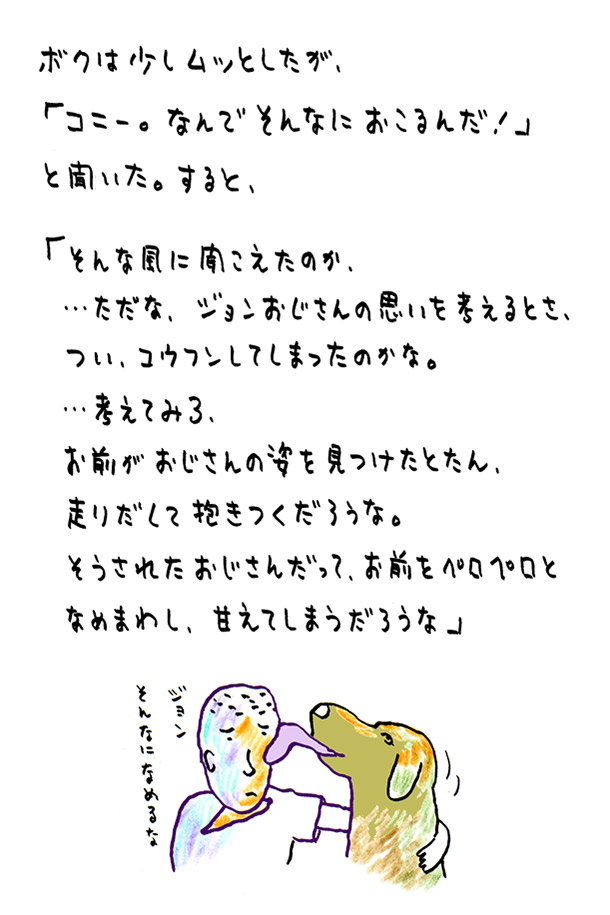 ボクは少しムッとしたが、
「コニー。なんでそんなにおこるんだ!」
と聞いた。すると、
「そんな風に聞こえたのか、
…ただな、ジョンおじさんの思いを考えるとさ、
つい、コウフンしてしまったのかな。
…考えてみろ、
お前がおじさんの姿を見つけたとたん、
走りだして抱きつくだろうな。
そうされたおじさんだって、お前をペロペロと
なめまわし、甘えてしまうだろうな」
ジョン
そんなになめるな